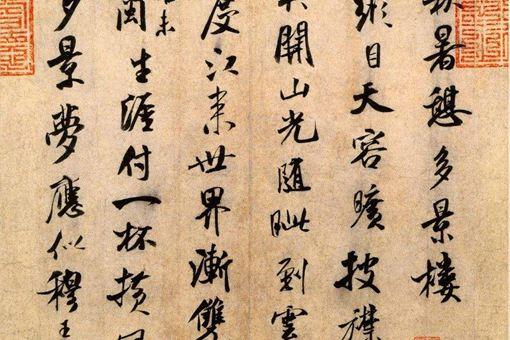 暑憩多景樓
縱目天容曠披襟
開山光隨眺到雲
度江來世界漸雙
未
閩生涯付一杯橫
景夢應似穆王